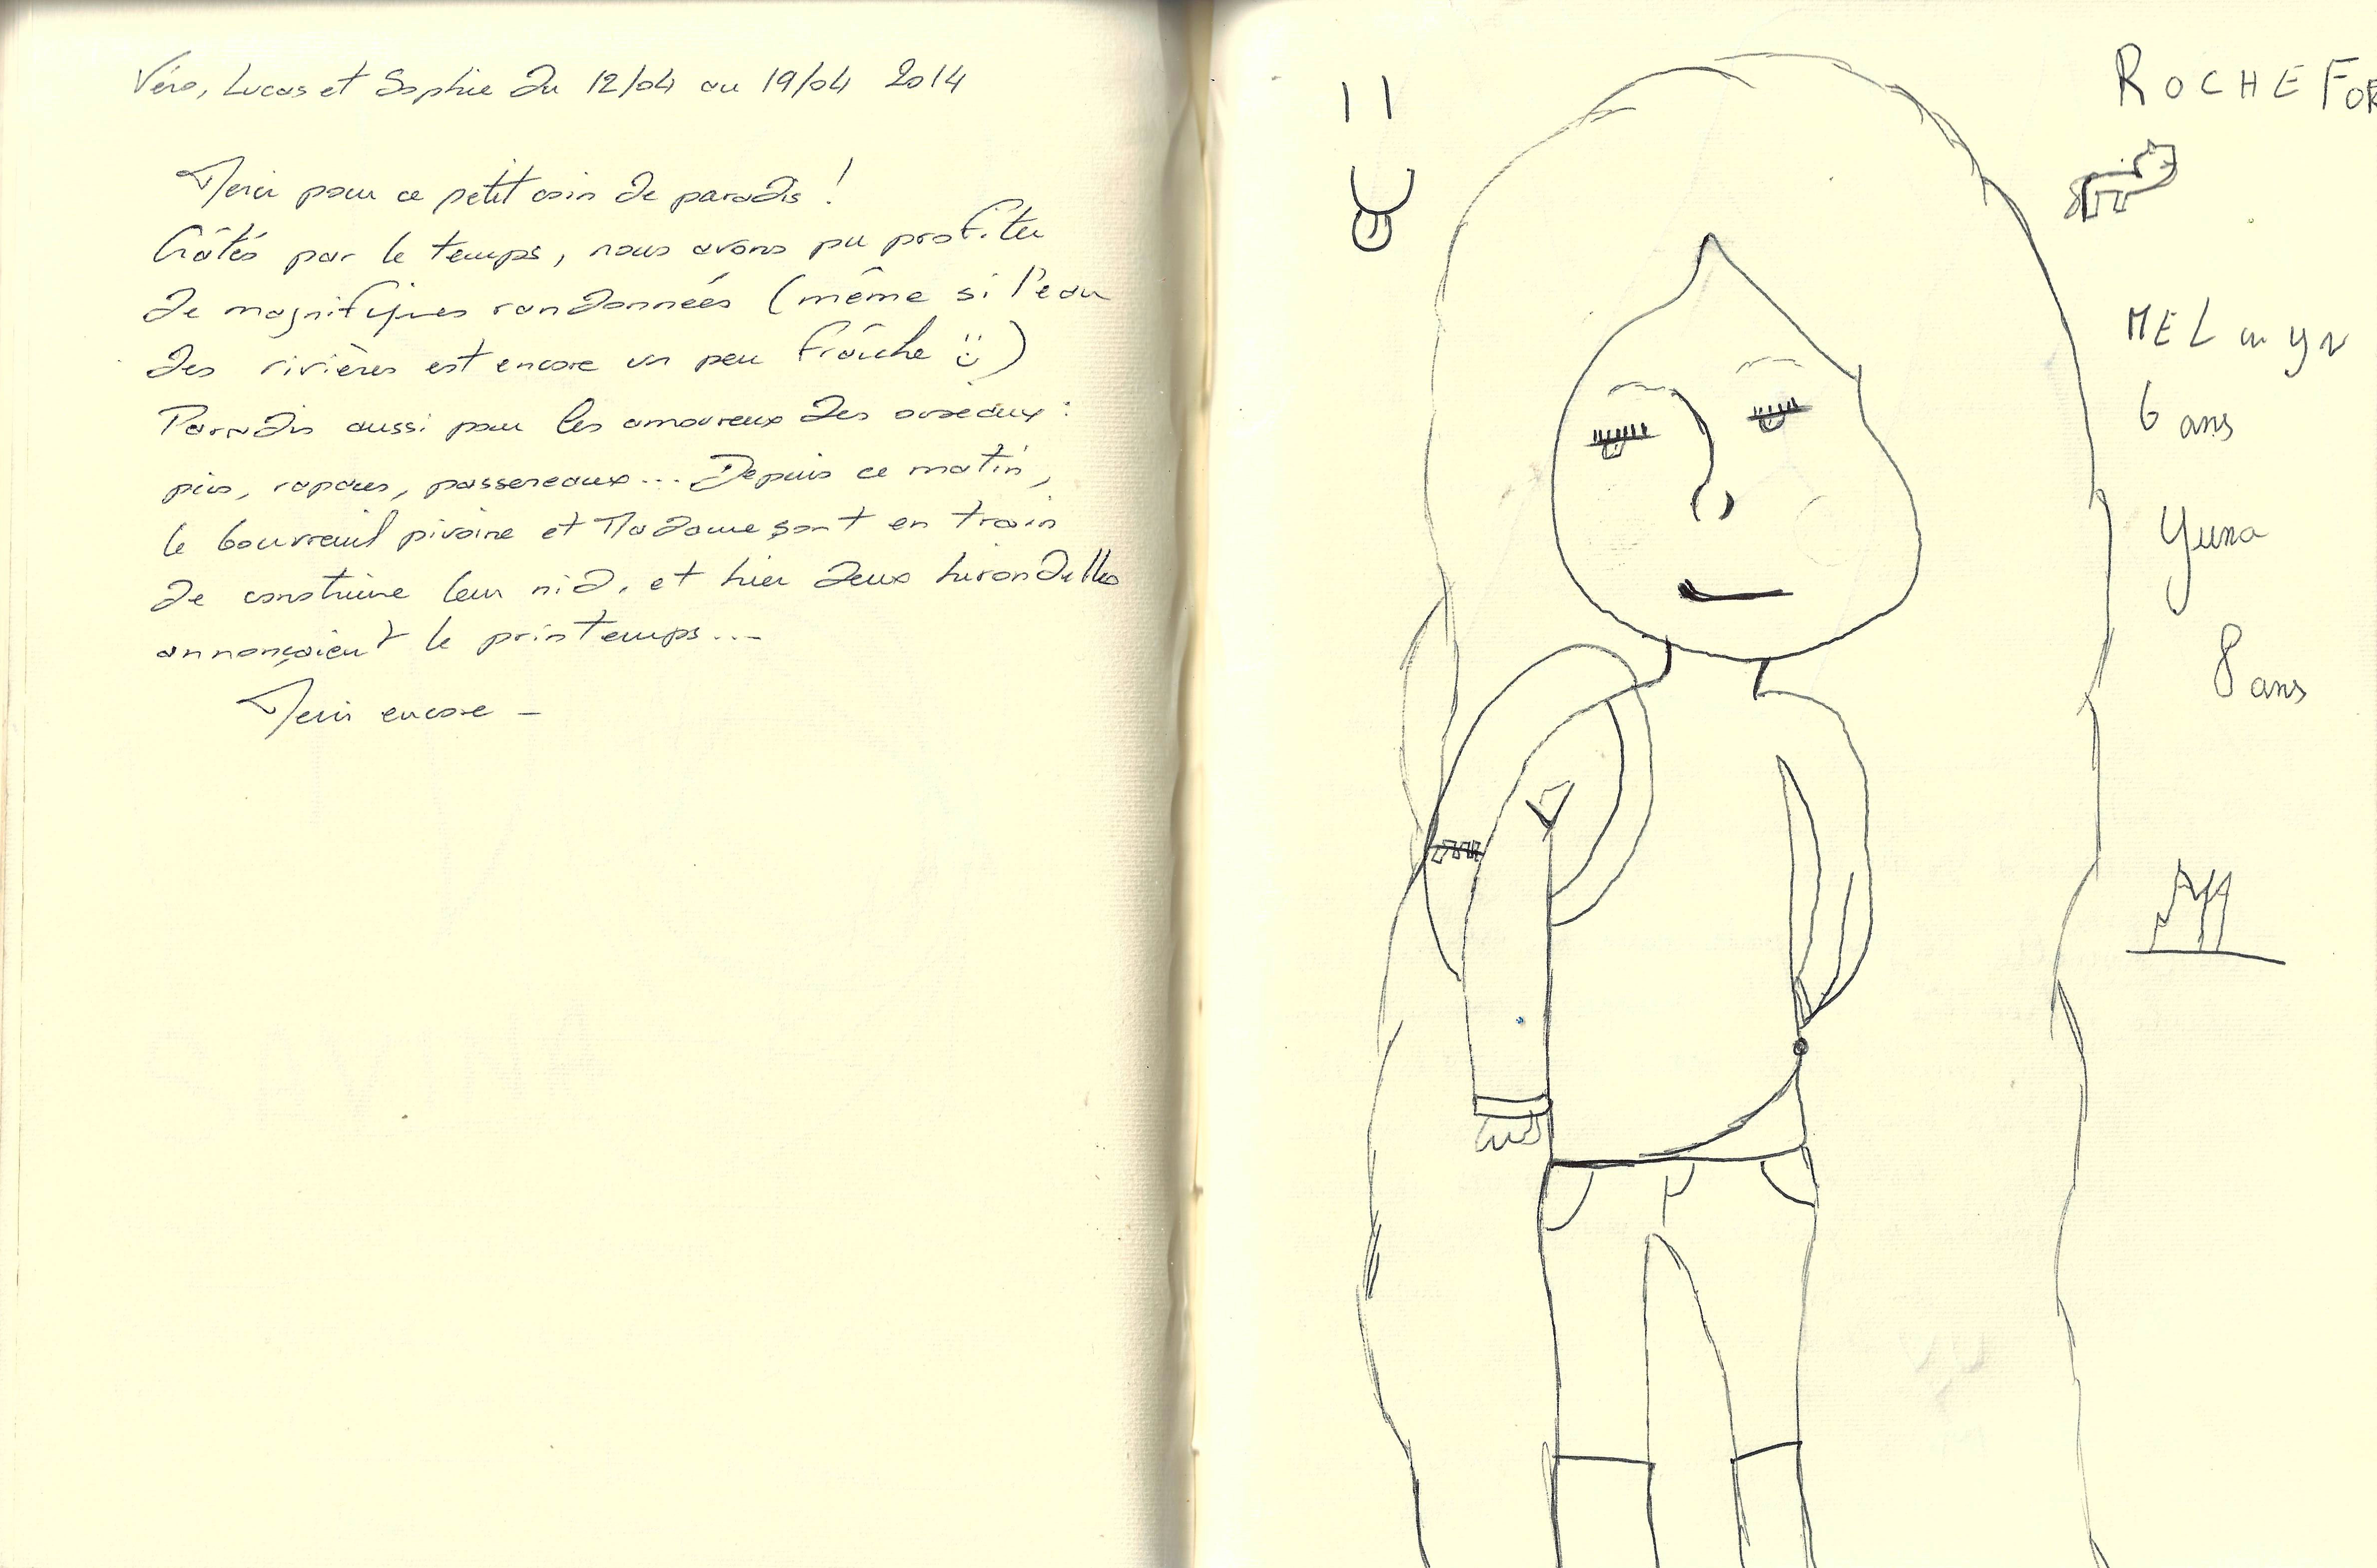 Véro, Lucas et Sophie du 12/04 au 19/04 2014
Merci pour ce petit coin de paradis !
Gâtés par le temps, nous avons pu profiter
de magnifiques randonnées (même si l'eau
des rivières est encore un peu fraîche :)
Paradis aussi pour les amoureux des oiseaux :
pics, rapaces, passereaux... Depuis ce matin,
le bouvreuil pivoine et Madame sont en train
de construire leur nid, et hier deux hirondelles
annonçaient le printemps...
Merci encore -
ROCHEFOR
MELwyN
6 ans
Yuna
8 ans